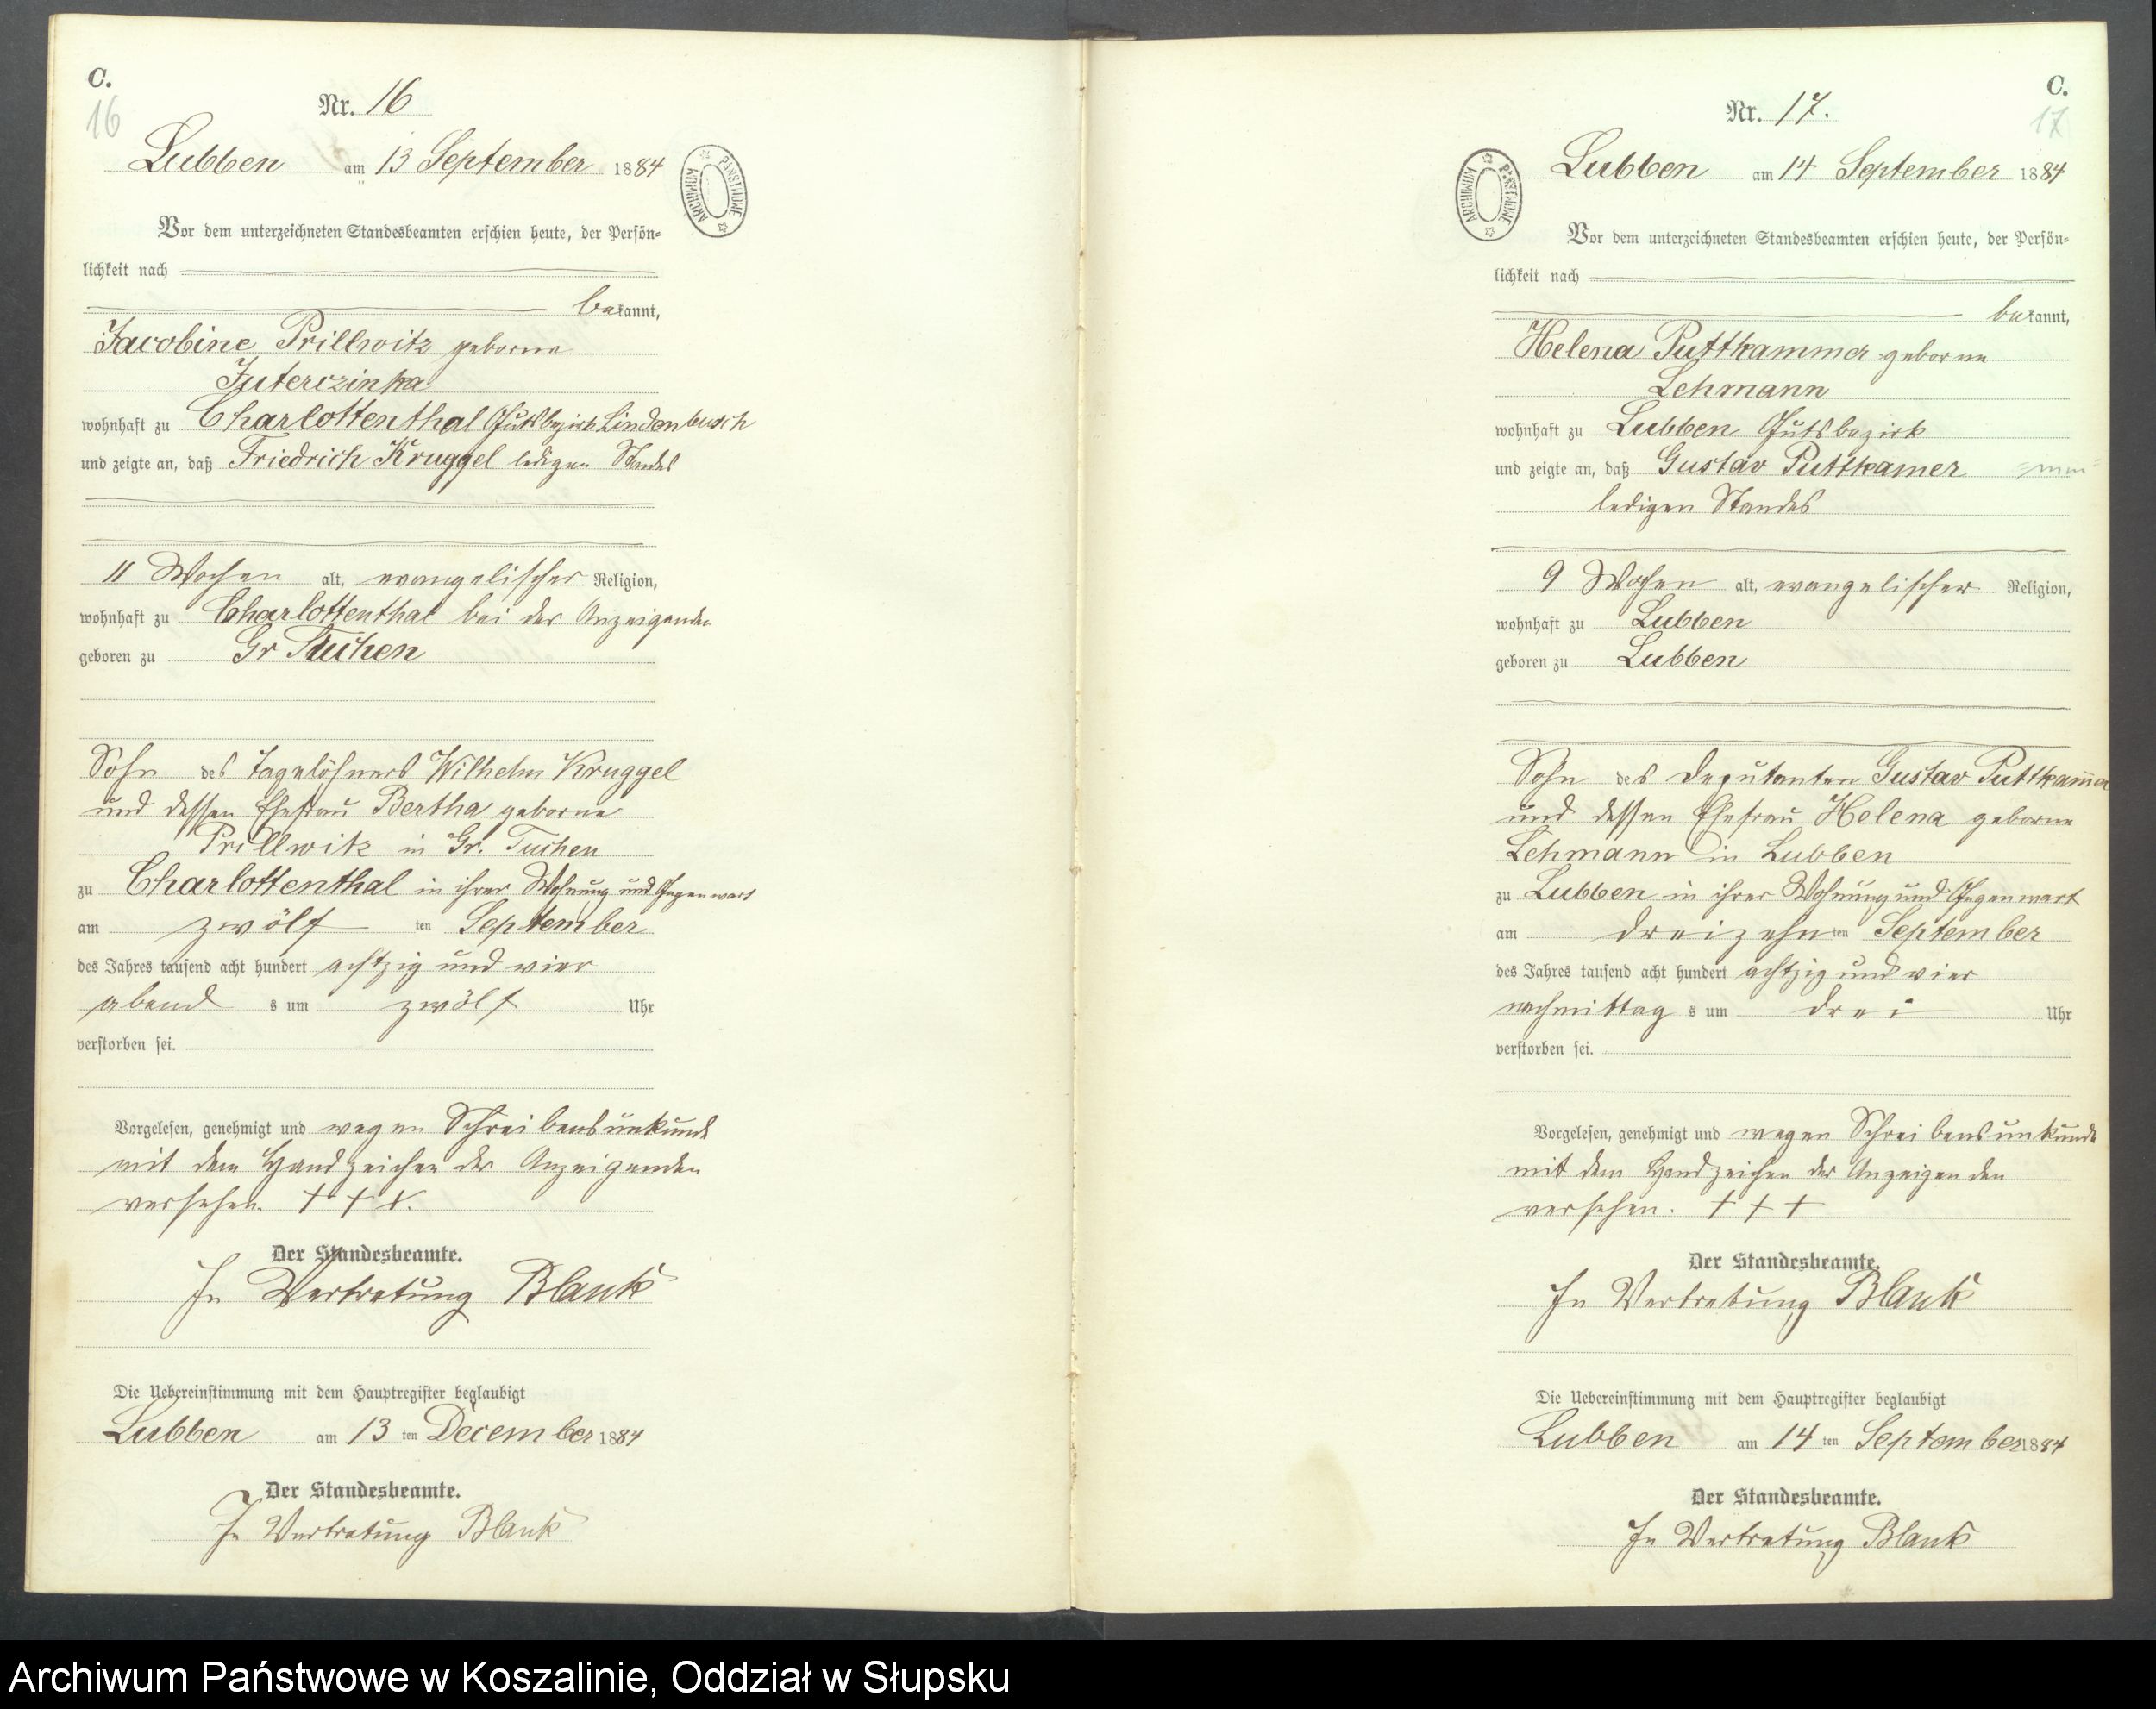 C.
16
Nr. 16
Lubben am 13 September 1884
ARCHIWUM PAŃSTWOWE
Vor dem unterzeichneten Standesbeamten erschien heute, der Persön-
lichkeit nach
bekannt,
Jacobine Prillwitz geborne
Juterczinka
wohnhaft zu Charlottenthal Gutsbezirk Lindenbusch
und zeigte an, daß Friedrich Kruggel ledigen Standes
11 Wochen alt, evangelischer Religion,
wohnhaft zu Charlottenthal bei der Anzeigenden
geboren zu Gr Tuchen
Sohn des Tagelöhners Wilhelm Kruggel
und dessen Ehefrau Bertha geborne
Prillwitz in Gr. Tuchen
zu Charlottenthal in ihrer Wohnung und Gegenwart
am zwölf ten September
des Jahres tausend acht hundert achtzig und vier
abend s um zwölf Uhr
verstorben sei.
Vorgelesen, genehmigt und wegen Schreibensunkunde
mit dem Handzeichen der Anzeigenden
versehen. + + +.
Der Standesbeamte.
In Vertretung Blank
Die Uebereinstimmung mit dem Hauptregister beglaubigt
Lubben am 13 ten December 1884
Der Standesbeamte.
In Vertretung Blank
C.
17
Nr. 17.
Lubben am 14 September 1884
ARCHIWUM PAŃSTWOWE
Vor dem unterzeichneten Standesbeamten erschien heute, der Persön-
lichkeit nach
bekannt,
Helena Puttkammer geborne
Lehmann
wohnhaft zu Lubben Gutsbezirk
und zeigte an, daß Gustav Puttkamer =mm=
ledigen Standes
9 Wochen alt, evangelischer Religion,
wohnhaft zu Lubben
geboren zu Lubben
Sohn des Deputanten Gustav Puttkam̅er
und dessen Ehefrau Helena geborne
Lehmann in Lubben
zu Lubben in ihrer Wohnung und Gegenwart
am dreizehn ten September
des Jahres tausend acht hundert achtzig und vier
nachmittag s um drei Uhr
verstorben sei.
Vorgelesen, genehmigt und wegen Schreibensunkunde
mit dem Handzeichen der Anzeigenden
versehen. + + +
Der Standesbeamte.
In Vertretung Blank
Die Uebereinstimmung mit dem Hauptregister beglaubigt
Lubben am 14 ten September 1884
Der Standesbeamte.
In Vertretung Blank
Archiwum Państwowe w Koszalinie, Oddział w Słupsku